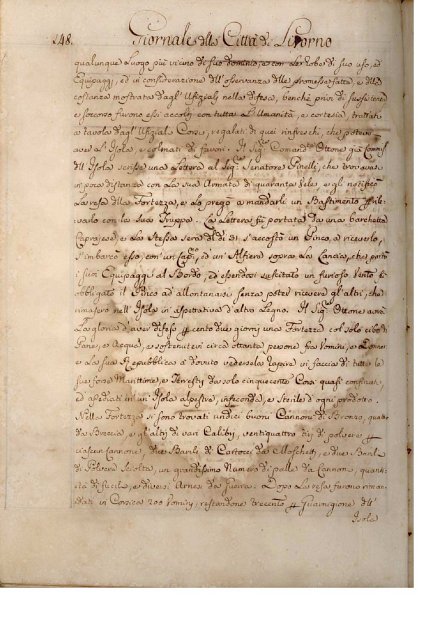 148. Giornale della Città di Livorno
qualunque Luogo più vicino di suo dominio, e con le Robe di suo uso, ed
Equipaggi, ed in considerazione dell'osservanza delle promesse fatte, e della
costanza mostrata dagl'Uffiziali nella difesa, benchè privi di sussistenza
e soccorso furono essi accolti con tutta l'Umanità, e cortesia, trattati
a tavola dagl'Uffiziali Corsi, e regalati di quei rinfreschi, che potevan
aver l'Isola, e colmati di favori. Il Sig. Comand. Ottone già Commiss.
dell'Isola scrisse una Lettera al Sig. Senatore Pinelli, che trovavasi
in poca distanza con la sua Armata di quaranta Vele, e gli notificò
La resa della Fortezza, e Lo pregò a mandarli un Bastimento
con la sua Truppa. La Lettera fu portata da una barchetta
Caprajese, e La stessa sera del dì di s'accostò un Pinco, a riceverlo,
s'imbarcò esso, con un Cap., ed un Alfiere sopra La Lancia, che portò
i suoi Equipaggi al Bordo, ed essendosi suscitato un furioso Vento
obbligato il Pinco ad allontanarsi senza poter ricevere gl'altri, che
rimasero nell'Isola in aspettativa d'altro Legno. Il Sig. Ottone avrà
La gloria d'aver difeso cento due giorni una Fortezza col solo cibo di
Pane, e Acqua, e sostenutevi circa ottanta persone fra Uomini, e Donne,
e La sua Repubblica à dovuto vedersela rapire in faccia di tutte le
sue forze Marittime, e Terrestri da solo cinquecento Corsi quasi
ed assediati in un'Isola alpestre, infeconda, e sterile d'ogni prodotto.
Nella Fortezza si sono trovati undici buoni Cannoni di Bronzo, quattro
da Breccia, e gl'altri di vari Calibri, ventiquattro tiri di polvere
ciascun Cannone, due Barili di Cartocci da Moschetti, e due Barili
di Polvere sciolta, un grandissimo Numero di palle da Cannone, quanti-
tà di fucili, e diversi Arnesi da Guerra. Dopo La resa furono riman-
dati in Corsica 200 Uomini, restandone trecento Guarnigione dell'
Isola